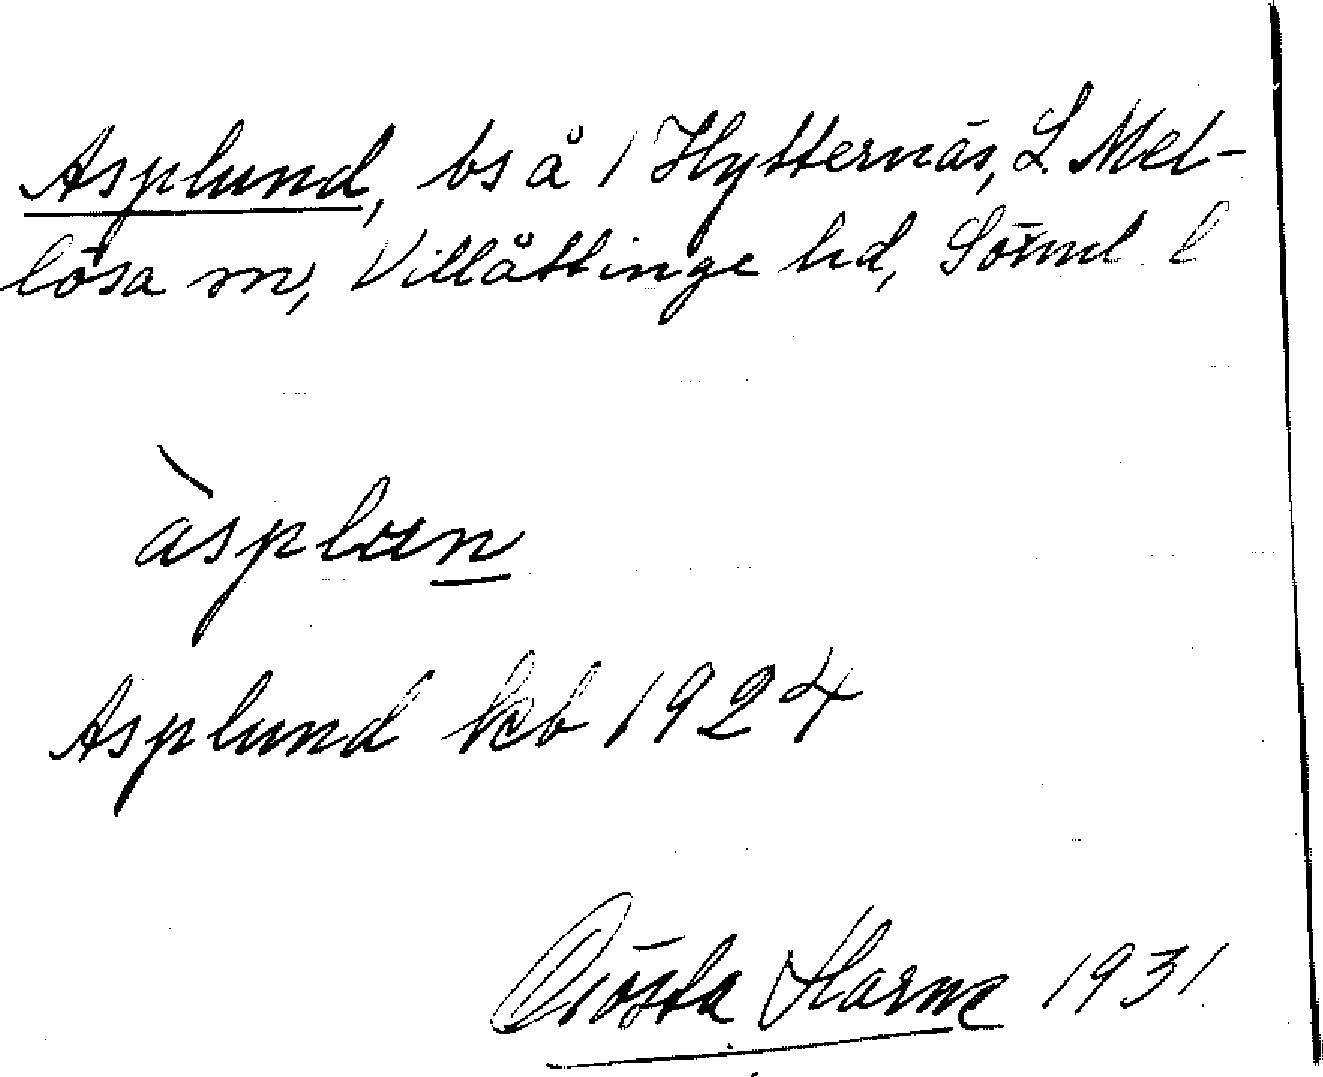 Asplund, bs å 1 Hytternäs, L. Mel-
lösa sn, Villåttinge hd, Söml l
àsplɯn
Asplund kb 1924
Gösta Harne 1931.